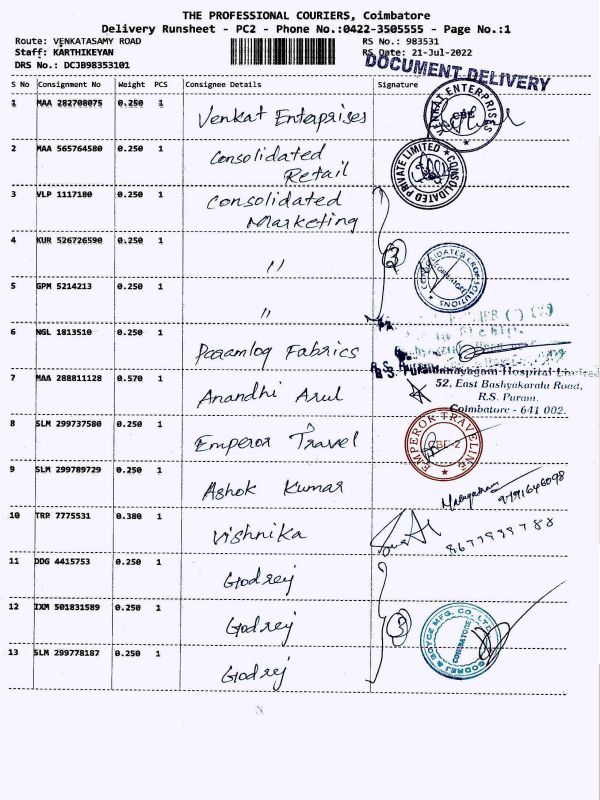 THE PROFESSIONAL COURIERS, Coimbatore
Delivery Runsheet - PC2 - Phone No.:0422-3505555 - Page No.:1
Route: VENKATASAMY ROAD RS No.: 983531
Staff: KARTHIKEYAN RS Date: 21-Jul-2022
DRS No.: DCJB98353101
DOCUMENT DELIVERY
S No Consignment No Weight PCS Consignee Details Signature
1 MAA 282708075 0.250 1 Venkat Enterprises
VENKAT ENTERPRISES CBE
2 MAA 565764580 0.250 1 Consolidated
Retail
CONSOLIDATED PRIVATE LIMITED
3 VLP 1117180 0.250 1 Consolidated
Marketing
4 KUR 526726590 0.250 1 "
3
COIMBATORE
5 GPM 5214213 0.250 1 "
6 NGL 1813510 0.250 1 Paramlog Fabrics
Hospital Limited
7 MAA 288811128 0.570 1 Anandhi Arul
52, East Bashyakaralu Road,
R.S. Puram.
Coimbatore - 641 002.
8 SLM 299737580 0.250 1 Emperor Travel
EMPEROR TRAVELINE CBE-2
9 SLM 299789729 0.250 1 Ashok Kumar
9791646098
10 TRP 7775531 0.380 1 Vishnika
11 DDG 4415753 0.250 1 Godrej
12 IXM 501831589 0.250 1 Godrej
GODREJ & BOYCE MFG. CO. LTD. COIMBATORE
13 SLM 299778187 0.250 1 Godrej